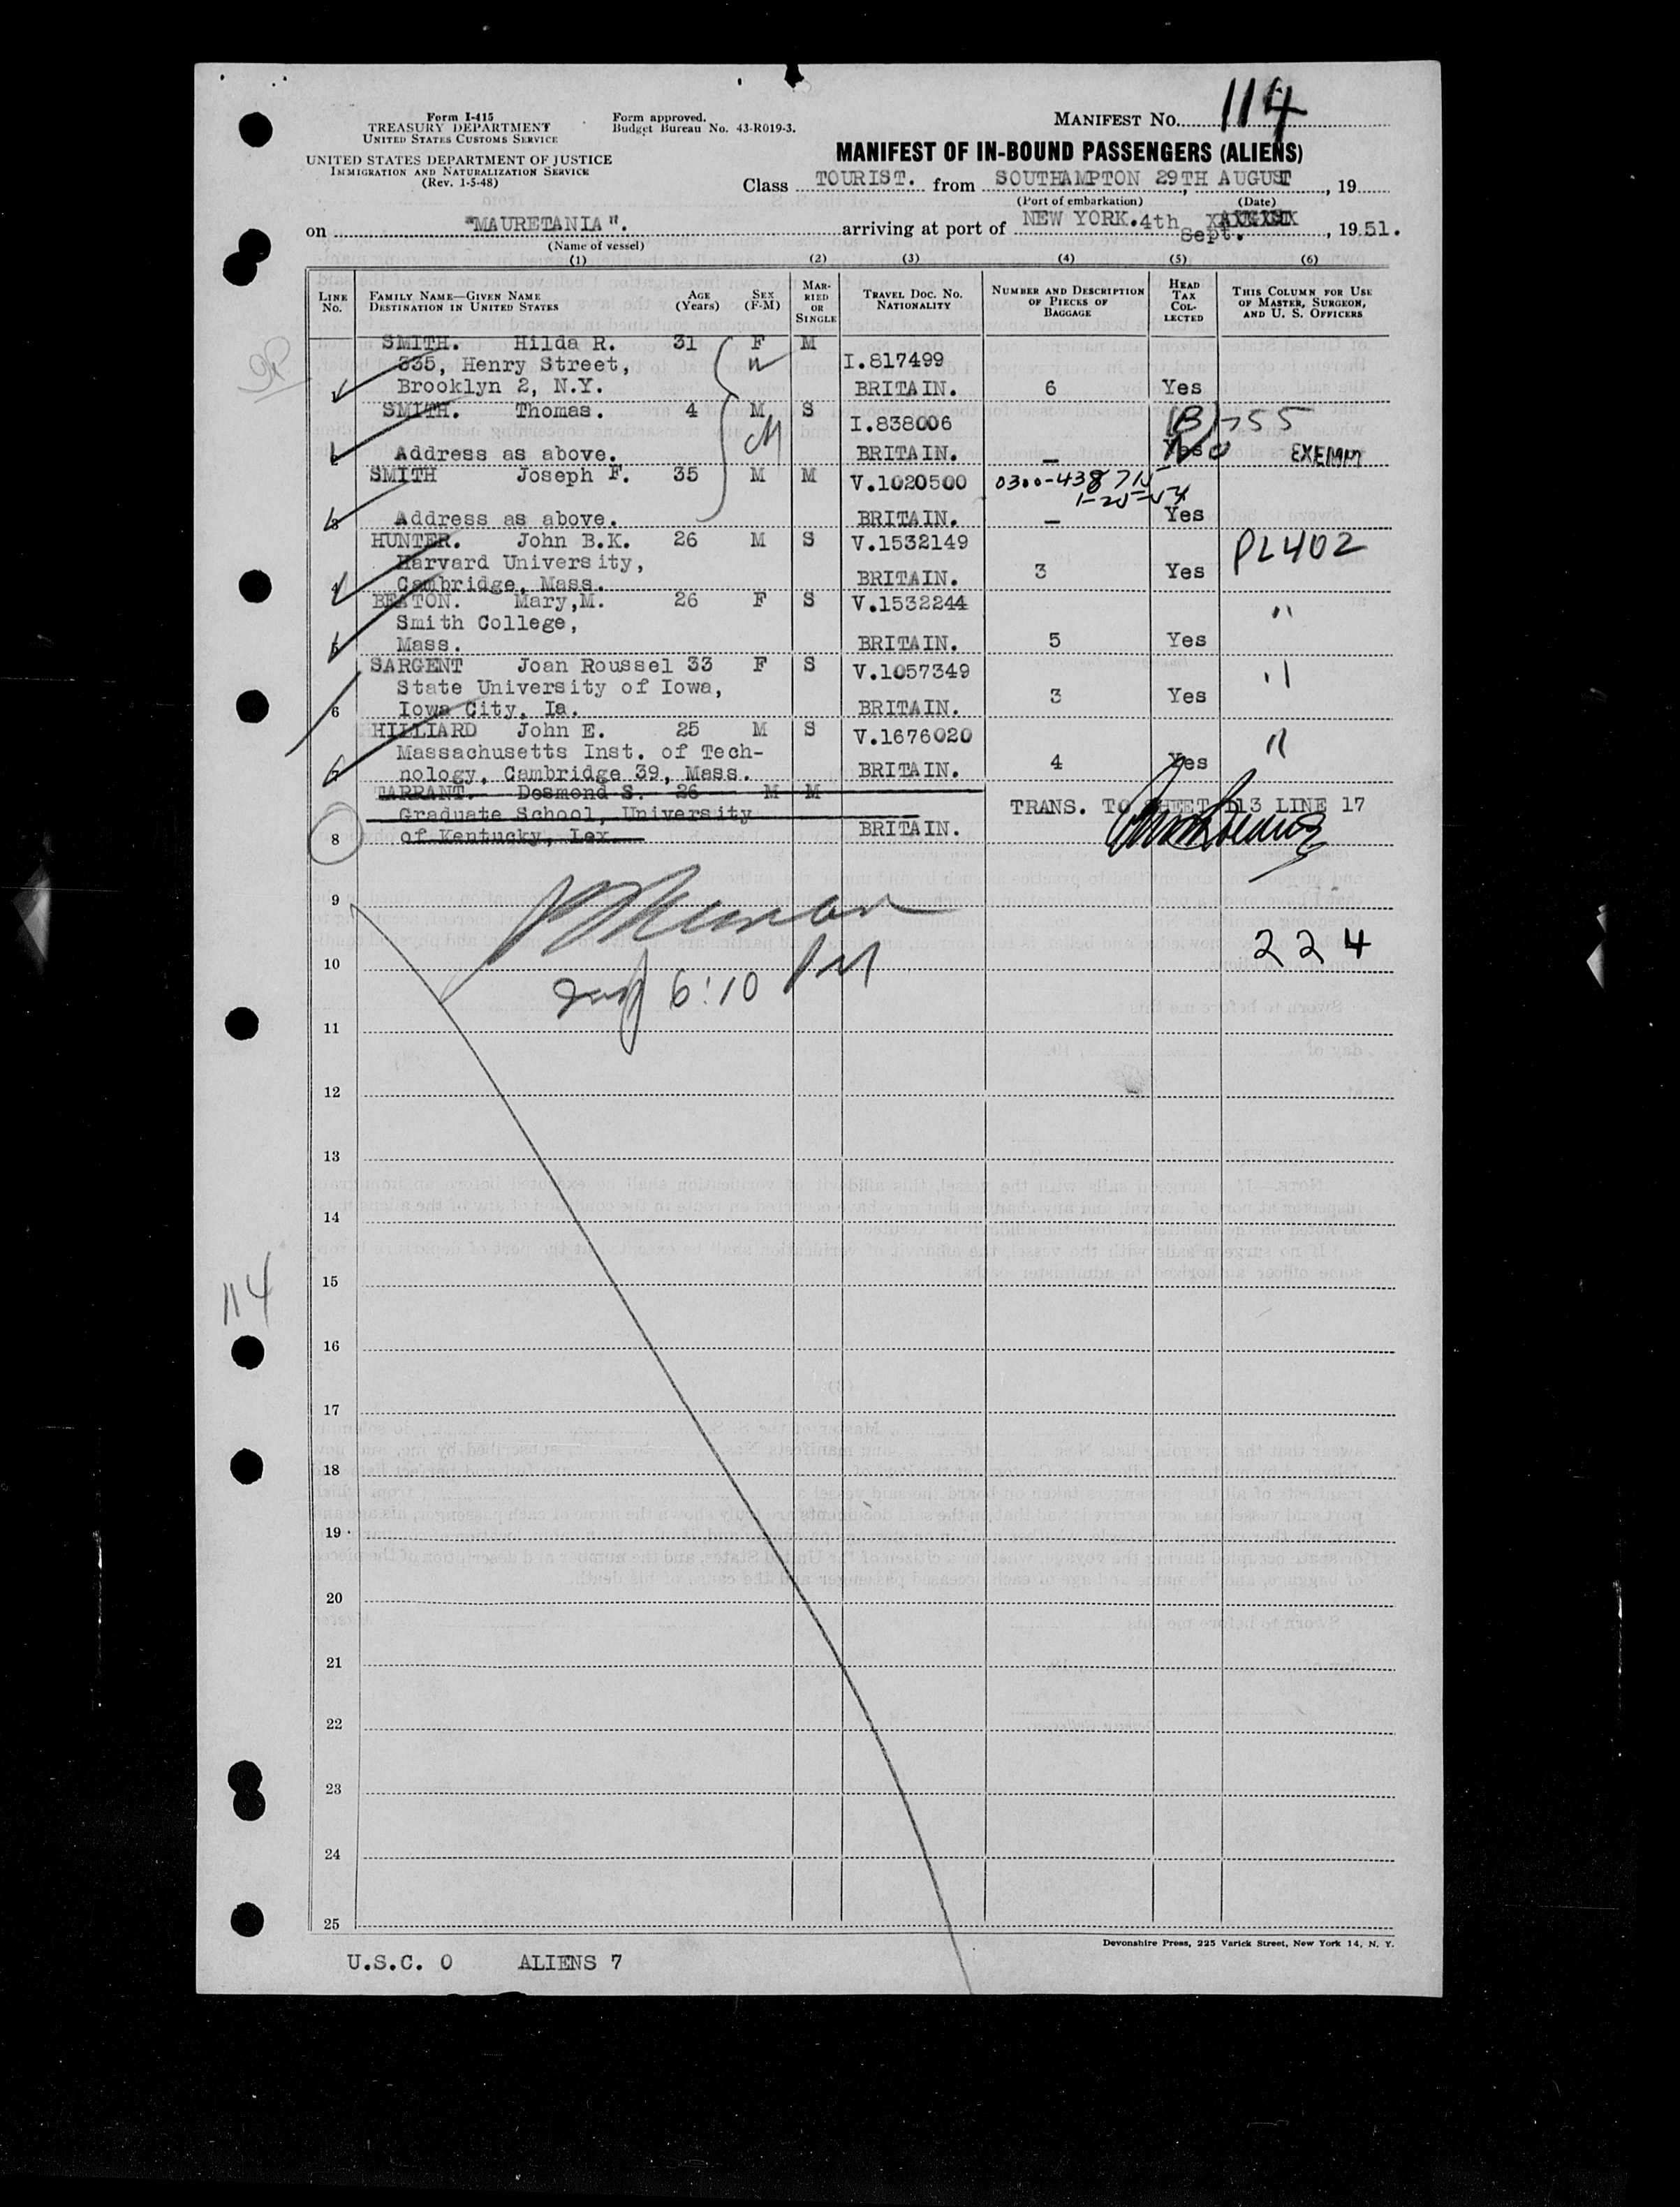 Form I-415
TREASURY DEPARTMENT
UNITED STATES CUSTOMS SERVICE
UNITED STATES DEPARTMENT OF JUSTICE
IMMIGRATION AND NATURALIZATION SERVICE
(Rev. 1-5-48)
Form approved.
Budget Bureau No. 43-R019-3.
MANIFEST NO. 114
MANIFEST OF IN-BOUND PASSENGERS (ALIENS)
Class TOURIST. from SOUTHAMPTON 29TH AUGUST, 19
(Port of embarkation) (Date)
on "MAURETANIA". arriving at port of NEW YORK. 4th Sept., 1951.
(Name of vessel)
(1) (2) (3) (4) (5) (6)
LINE NO. FAMILY NAME—GIVEN NAME DESTINATION IN UNITED STATES AGE (Years) SEX (F-M) MARRIED OR SINGLE TRAVEL DOC. NO. NATIONALITY NUMBER AND DESCRIPTION OF PIECES OF BAGGAGE HEAD TAX COLLECTED THIS COLUMN FOR USE OF MASTER, SURGEON, AND U. S. OFFICERS
SMITH. Hilda R. 31 F M
335, Henry Street, I.817499
1 Brooklyn 2, N.Y. BRITAIN. 6 Yes
SMITH. Thomas. 4 M S I.838006 (B)-55
2 Address as above. BRITAIN. — Yes No EXEMPT
SMITH Joseph F. 35 M M V.1020500 0300-43871
3 Address as above. BRITAIN. — Yes
HUNTER. John B.K. 26 M S V.1532149 PL402
Harvard University,
4 Cambridge, Mass. BRITAIN. 3 Yes
BEATON. Mary,M. 26 F S V.1532244 "
Smith College,
5 Mass. BRITAIN. 5 Yes
SARGENT Joan Roussel 33 F S V.1057349 "
State University of Iowa, 3 Yes
6 Iowa City, Ia. BRITAIN.
HILLIARD John E. 25 M S V.1676020 "
Massachusetts Inst. of Tech-
7 nology, Cambridge 39, Mass. BRITAIN. 4 Yes
TARRANT. Desmond S. 26 M M
Graduate School, University TRANS. TO SHEET 113 LINE 17
8 of Kentucky, Lex. BRITAIN.
9
224
10
6:10 PM
11
12
13
14
114
15
16
17
18
19
20
21
22
23
24
25
Devonshire Press, 225 Varick Street, New York 14, N. Y.
U.S.C. 0 ALIENS 7